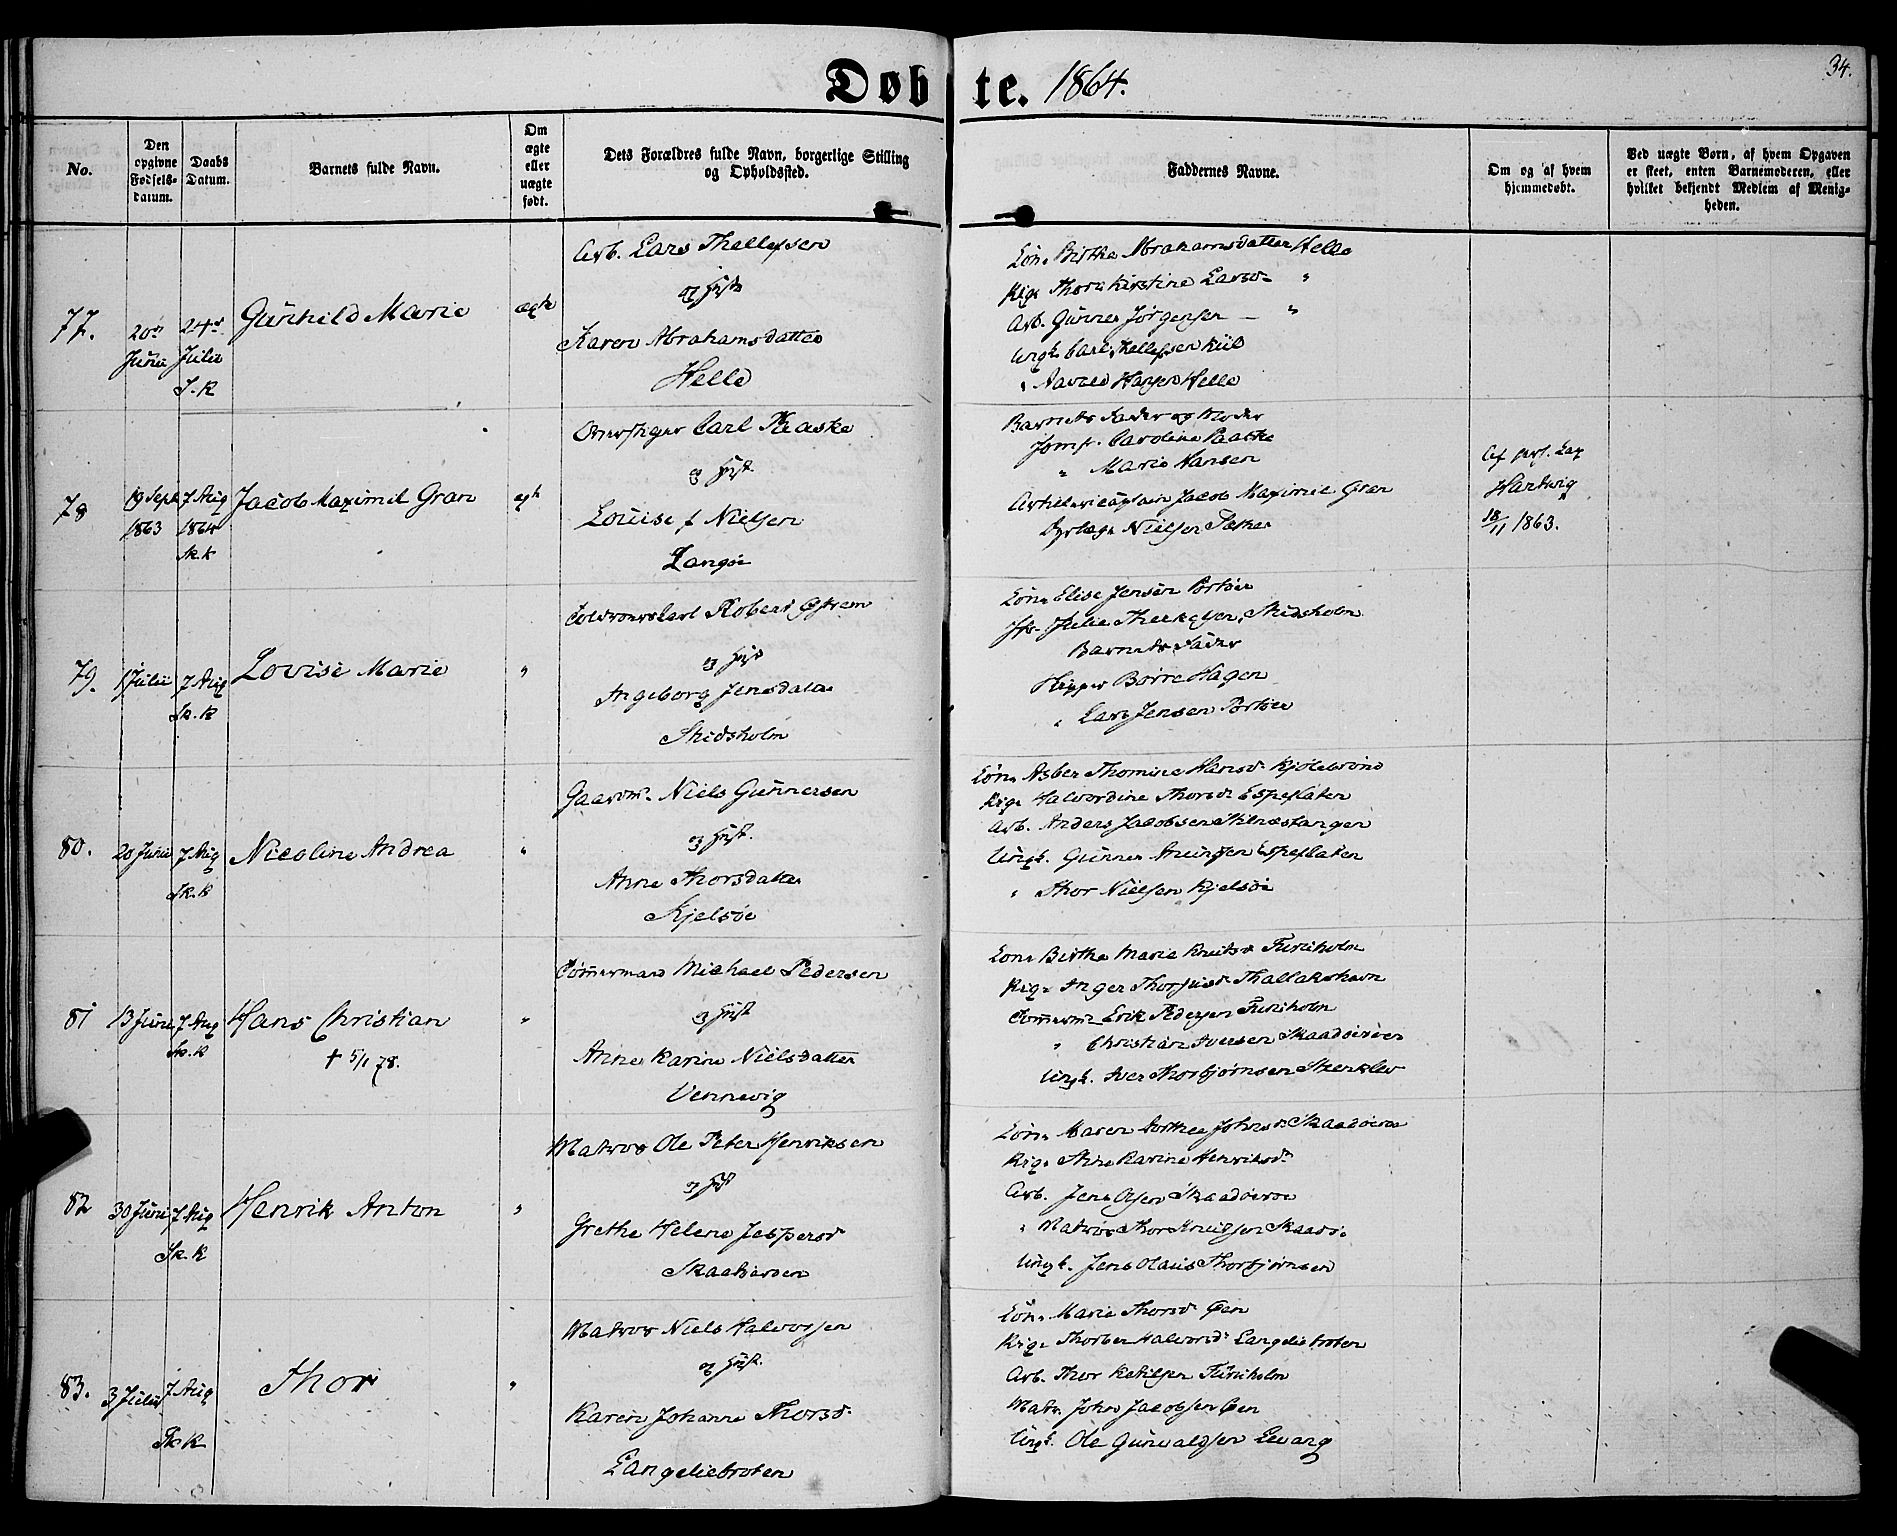 Døbte. 1864.
34.
No.
Den opgivne Fødselsdatum.
Daabs Datum.
Barnets fulde Navn.
Om ægte eller uægte født.
Dets Forældres fulde Navn, borgerlige Stilling og Opholdssted.
Faddernes Navne.
Om og af hvem hjemmedøbt.
Ved uægte Børn, af hvem Opgaven er skeet, enten Barnemoderen, eller hvilket bekjendt Medlem af Menigheden.
77.
20de Junii
24de Julii
S. K
Gunhild Marie
ægte
Arb. Lars Thellefsen
og Hust
Karen Abrahamsdatter
Helle
Kon. Birthe Abrahamsdatter Helle
Pige Thora Kirstine Larsd. "
Arb. Gunner Jørgensen — "
Ungk. Carl Thellefsen Kiil
" Aavald Hansen Helle
78
19 Sept 1863
7 Aug 1864
Sk. K
Jacob Maximil Gran
ægte
Overstiger Carl Paaske
og Hust.
Louise f. Nielsen
Langøe
Barnets Fader og Moder
Jomfr. Caroline Paaske
" Marie Hansen
Artillericaptain Jacob Maximil Gran
Nielsen
af pers. Cap
Hartwig
18/11 1863.
79.
1 Julii
7 Aug
Sk. K
Lovise Marie
"
Carl Robert
og Hust
Ingeborg Jensdatter
Skidsholm
Kon. Elise Jensen Portøer
Julie Skidsholm
Barnets Fader
Skipper Børre Hagen
" Lars Jensen Portøer
80.
20 Junii
7 Aug
Sk. K
Nicoline Andrea
"
Gaardm. Niels Gunnersen
og Hust.
Anne Thorsdatter
Kjelsøe
Kon. Asber Thomine Hansd.
Pige Halvordine Thorsd. Espeflaten
Arb. Anders Jacobsen Stilnestangen
Ungk. Gunner Espeflaten
" Thor Nielsen Kjelsøe
81
13 Junii
7 Aug
Sk. K
Hans Christian
+ 5/1 78.
"
Tømmermand Michael Pedersen
og Hust
Anne Karine Nielsdatter
Vennevig
Kon. Birthe Marie Knutsd. Furuholm
Pige Inger Thorjusd. Thallakshavn
Tømmerm. Erik Pedersen Furuholm
" Christian Iversen Skaadøerøen
Ungk. Iver Thorbjørnsen Stenklev
82
30 Juni
7 Aug
Sk. K
Henrik Anton
"
Matros Ole Peter Henriksen
og Hust
Grethe Helene Jespersd
Skaadøerøen
Kon. Maren Dorthea Johnsd. Skaadøeroe
Pige Stine Karine Henriksd.
Arb. Jens Olsen Skaadøeroe
" Matros Thor Knudsen Skaadø.
Ungk. Jens Olaus Thorbjørnsen
83.
3 Julii
7 Aug
Sk K
Thor
"
Matros Niels Halvorsen
og Hust.
Karen Johanne Thorsd.
Langeliebroten
Kon. Marie Thorsd. Øen
Pige Thorber Halvorsd. Langeliebroten
Arb. Thor Ketilsen Furuholm
Matr. John Jacobsen Øen
Ungk. Ole Gunvaldsen Levang